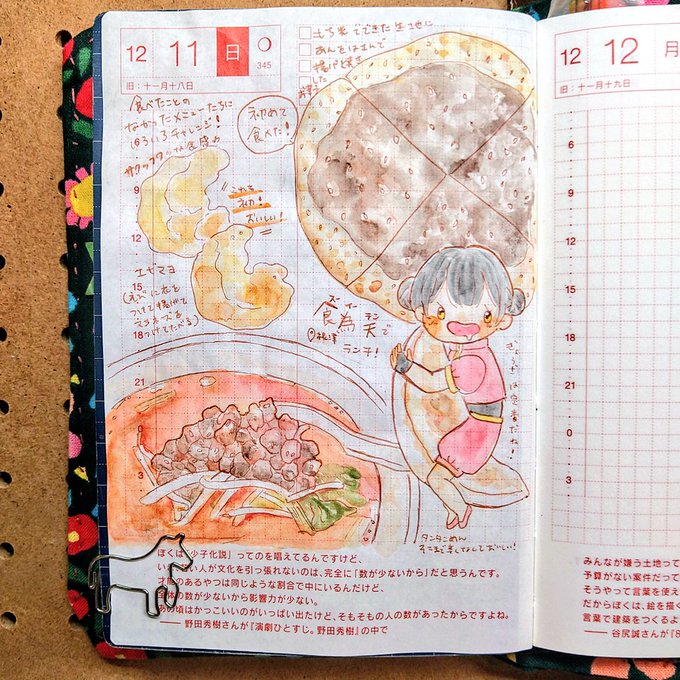 12 11 日
345
旧：十一月十八日
もち米でできた生地に
あんをはさんで
揚げ焼き
した
お菓子
食べたことの
なかったメニューたちに
いろいろチャレンジ！
サクッフワな食感
初めて
食べた！
これも
初！
おいしい！
エビマヨ
(えびに衣を
つけて揚げて
マヨネーズを
つけてたべる)
9
12
15
18
21
3
食為天で
ランチ！
ぎょうざは定番だね！
タンタンめん
そこまで辛くなくておいしい！
ぼくは「少子化説」ってのを唱えてるんですけど、
い 人が文化を引っ張れないのは、完全に「数が少ないから」だと思うんです。
才 のあるやつは同じような割合で中にいるんだけど、
全体の数が少ないから影響力が少ない。
あの頃はかっこいいのがいっぱい出たけど、そもそもの人の数があったからですよね。
―― 野田秀樹さんが『演劇ひとすじ。野田秀樹』の中で
12 12 月
旧：十一月十九日
9
12
15
18
21
0
3
みんなが嫌う土地って
予算がない案件だって
そうやって言葉を使え
だからぼくは、絵を描く
言葉で建築をつくるよ
―― 谷尻誠さんが『8